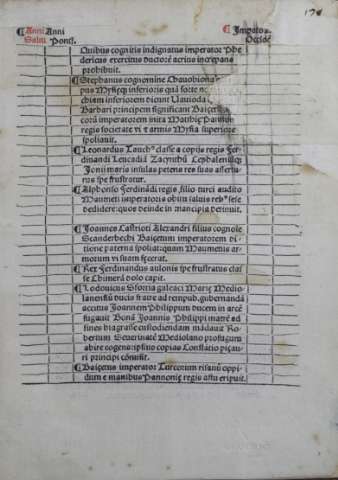 ¶Anni Anni ¶Impato⁊
Salu. Pontif. Occidē.
Quibus cognitis indignatus imperator Phe
dericus exercitus ductorē acrius increpans
prohibuit.
¶Stephanus cognomine
pus Mysieqȝ inferioris quā
chiam inferiorem dicunt Vaiuoda
Barbari principem significant Baiçete
cotū imperatorem inita Matthie Pannon
regis societate vi ⁊ armis Mysiā superiorē
spoliauit.
¶Leonardus classe a copijs regis Fer
dinandi Leucadiā Zacynthū Cephaleniāqȝ
Jonij maris insulas petens res suas asseru
rus spe frustratur.
¶Alphonso Ferdinādi regis filio turci audito
Maumeti imperatoris obitu saluis rebꝰ sese
dedidere: quos deinde in mancipia detinuit.
¶Joannes Castrioti Alexandri filius cognole
Scanderbechi Baiçetum imperatorem di
tione paterna spoliat: quam Maumetis ar
morum vi suam fecerat.
¶Rex Ferdinandus aulonis spe frustratus clas
se Chimerā dolo capit.
¶Lodouicus Sfortia galeaci Marie Medio
lanensiū ducis fratre ad rempub. gubernandā
accitus Joannem Philippum ducem in arcē
fugauit Bonā Joannis Philippi matrē ad
fines biagrasse custodiendam mādauit Ro
bertum Seuerinatē Mediolano profugum
abire cogens: ipsius copias Constantio piçau
ri principi cōmisit.
¶Baiçetus imperator Turcorum risanū oppi
dum e manibus Pannonie regis astu eripuit.